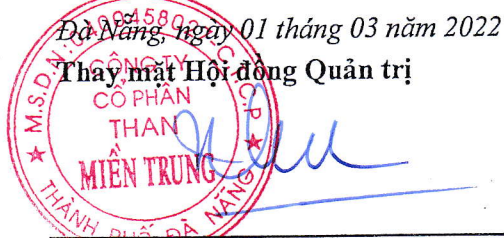 Đà Nẵng, ngày 01 tháng 03 năm 2022
Thay mặt Hội đồng Quản trị
CÔNG TY
CỔ PHẦN
THAN
MIỀN TRUNG
THÀNH PHỐ ĐÀ NẴNG